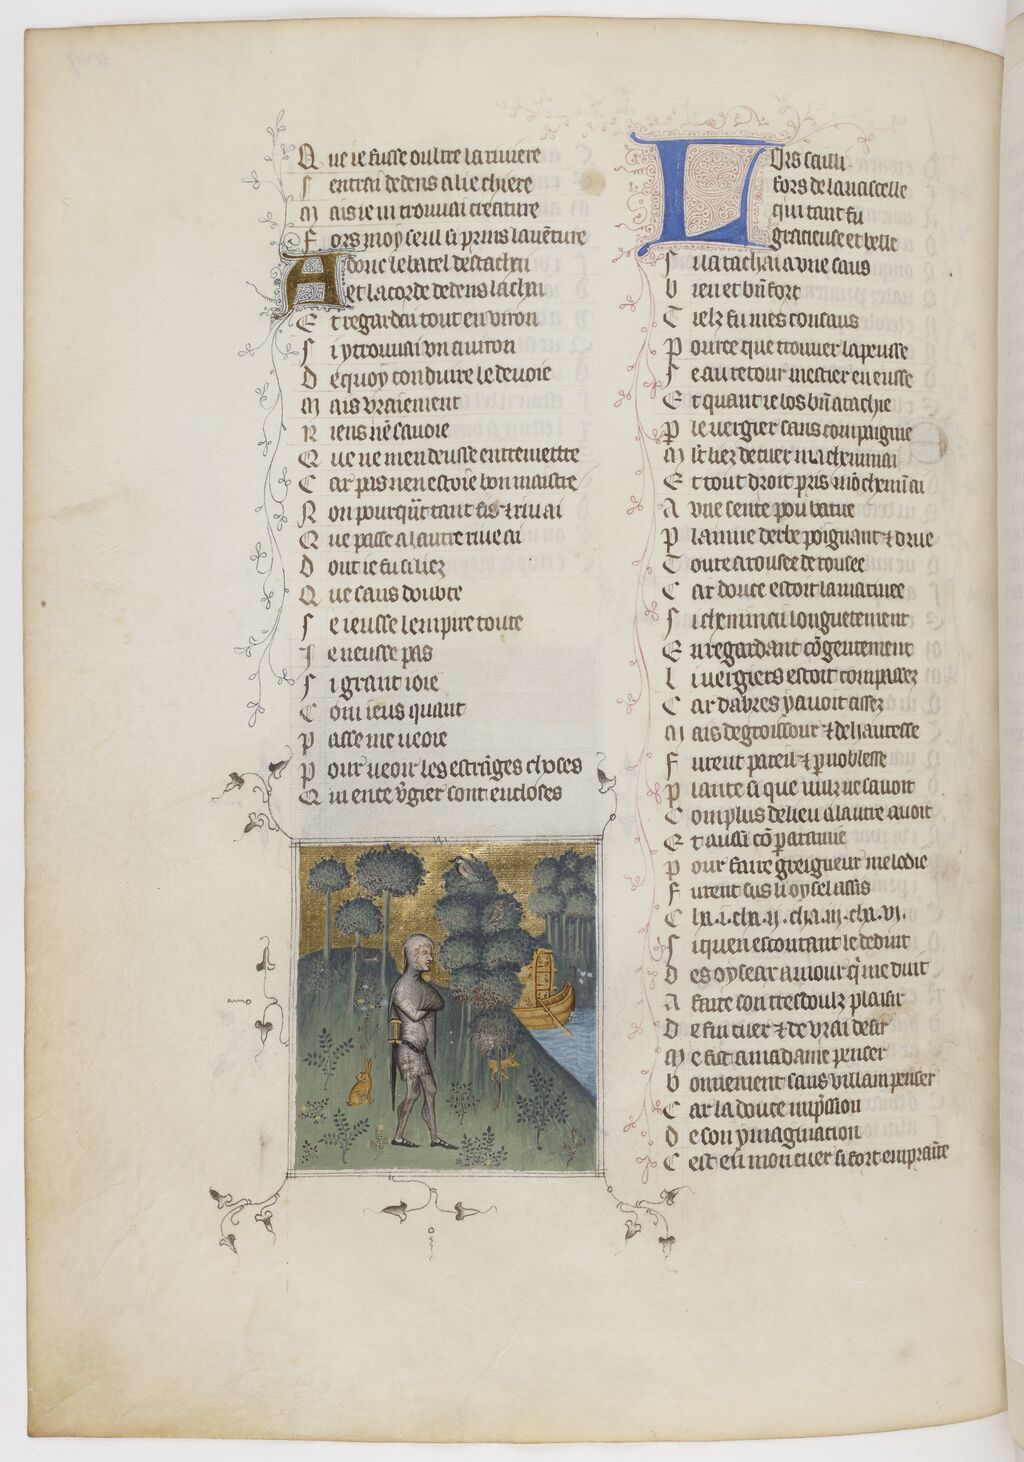 Que ie fusse oultre la riuiere
Sentrai dedens a lie chiere
Mais ie ni trouuai creature
Fors moy seul si prins lauẽture
Adonc le batel destachai
et la corde dedens lachai
Et regardai tout enuiron
Si y trouuai vn auiron
De quoy conduire le deuoie
Mais vraiement
Riens nẽ sauoie
Que ne men deusse entremettre
Car pas nen estoie bon maistre
Non pourq̃t tant fis ⁊ riuai
Que passe a lautre riue ai
Dont ie fui si liez
Que sans doubte
Se ieusse lempire toute
Ie neusse pas
Si grant ioie
Com ieus quant
Passe me ueoie
Pour ueoir les estrãges choses
Qui en ce v̾gier sont encloses
Lors sailli
fors de la nascelle
qui tant fu
gracieuse et belle
Si latachai a vne saus
Bien et bñ fort
Tielz fu mes consaus
Pour ce que trouuer la peusse
Se au retour mestier en eusse
Et quant ie los bñ atachie
P̱ le uergier sans compaignie
Mlt̃ liez de cuer machemmai
Et tout droit pris mõ chemĩ ai
A vne sente pou batue
Plainne derbe poignant ⁊ drue
Toute arousee de rousee
Car douce estoit la matinee
Si cheminai longuetement
En regardant cõ gentement
Li uergiers estoit compassez
Car dabres y auoit assez
Mais de groissour ⁊ de hautesse
Furent pareil ⁊ ꝑ noblesse
Plante si que nulz ne sauoit
Com plus de lieu a lautre auoit
Et aussi cõ ꝑ aatinne
Pour faire greigneur melodie
Furent sus li oysel assis
Cha .i. cha .ii. cha .iii. cha .vi.
Si quen escoutant le deduit
Des oysiax amour q̃ me duit
A faire son tresdoulz plaisir
De fin cuer ⁊ de vrai desir
Me fist a ma dame penser
Bonnement sans villain penser
Car la douce imp̃ssion
De son ymagination
Est en mon cuer si fort empraĩte